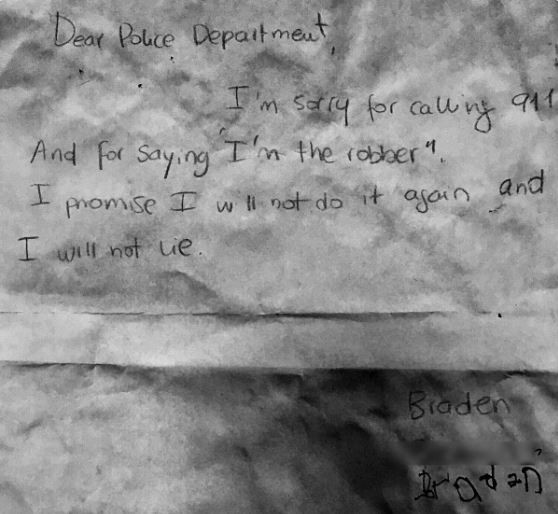 Dear Police Department,
I'm sorry for calling 911
And for saying "I'm the robber".
I promise I will not do it again and
I will not lie.
Braden
Braden